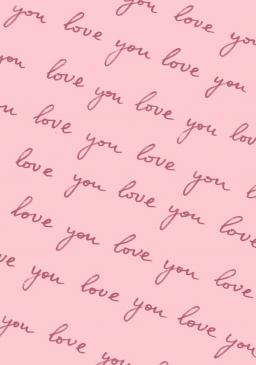 you love you
you love you love you
you love you love you lov
ou love you love you l
love you love you love
love you love you love
ve you love you love you
you love you